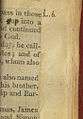 pass in those
L. 6.
into a
d continued
God.
day, he call-
les; and of
, whom also
also named
his brother,
ip and Bar-
mas, James
and Simon